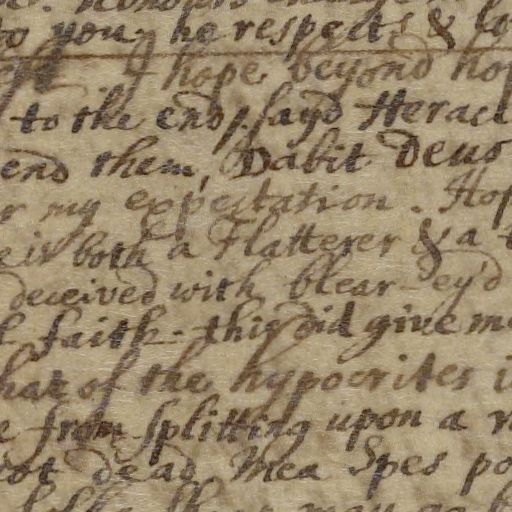 to you, he respects & lo
I hope beyond hop
to the end, sayd Heracl
end them, Dabit deus
r my expectation. Hop
e is both a Flatterer & a t
deceived with blear-ey'd
l faith. this did give me
hat of the hypocrites i
e from splitting upon a r
ot dead Mea Spes po